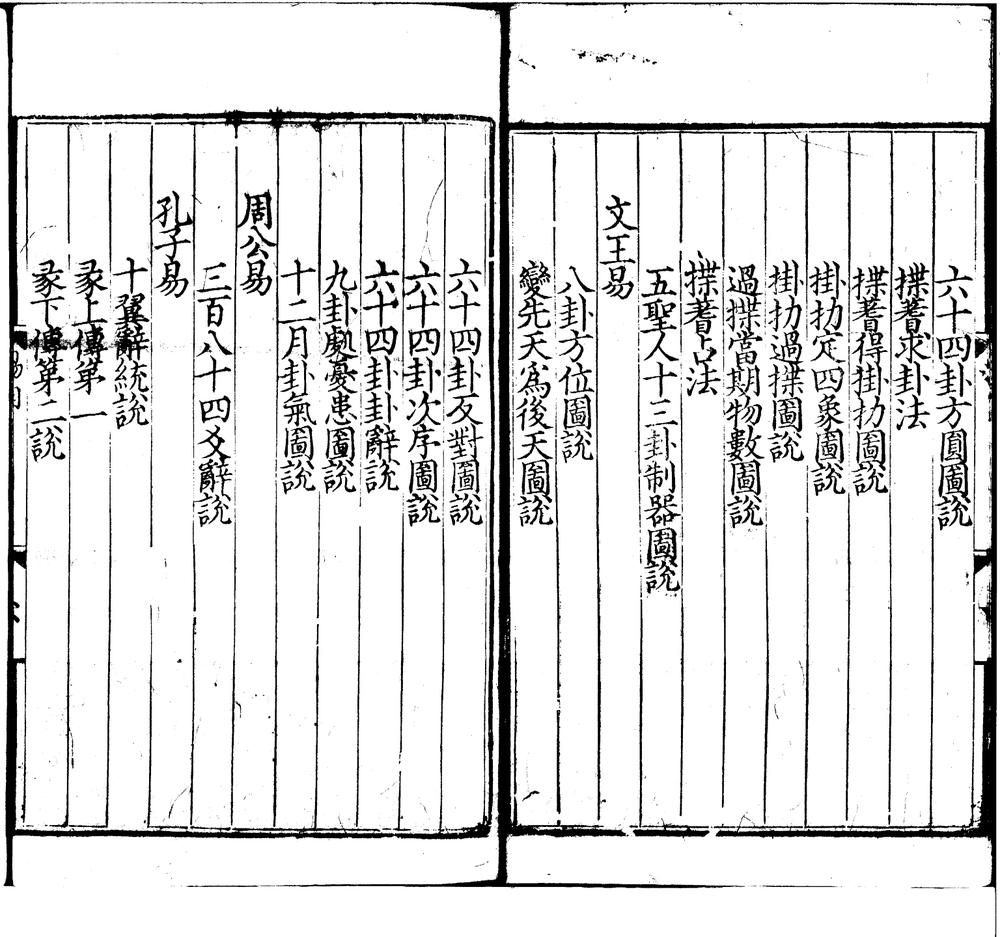 六十四卦方圓圖說
揲蓍求卦法
揲蓍得掛扐圖說
掛扐定四象圖說
掛扐過揲圖說
過揲當期物數圖說
揲蓍占法
五聖人十三卦制器圖說
文王易
八卦方位圖說
變先天爲後天圖說
六十四卦反對圖說
六十四卦次序圖說
六十四卦卦辭說
九卦處憂患圖說
十二月卦氣圖說
周公易
三百八十四爻辭說
孔子易
十翼辭統說
彖上傳第一
彖下傳第二說